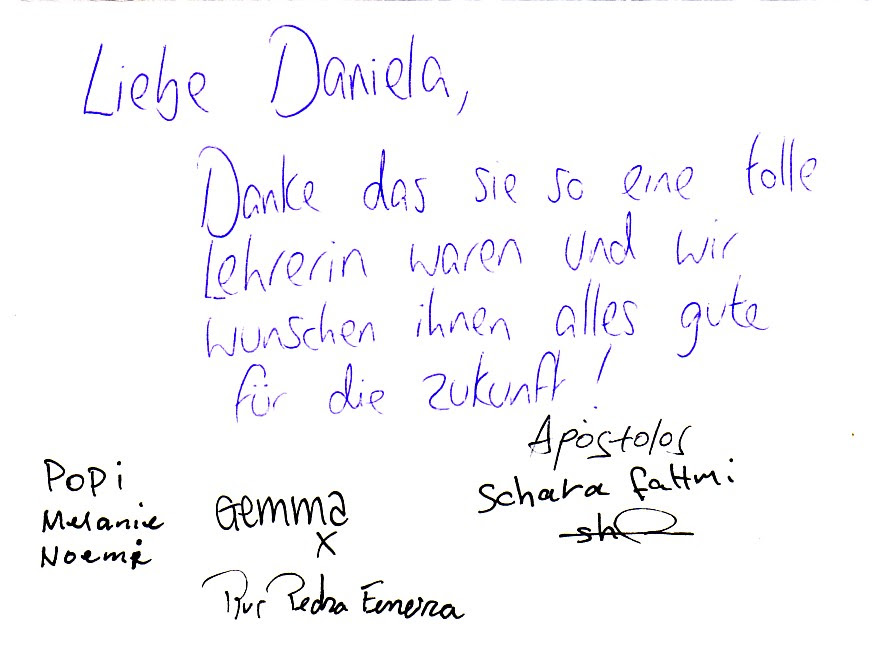 Liebe Daniela,
Danke das sie so eine tolle
Lehrerin waren und wir
wunschen ihnen alles gute
für die zukunft!
Apostolos
Schara fattmi
Popi
Melanie
Noemi
Gemma
x
Pedra